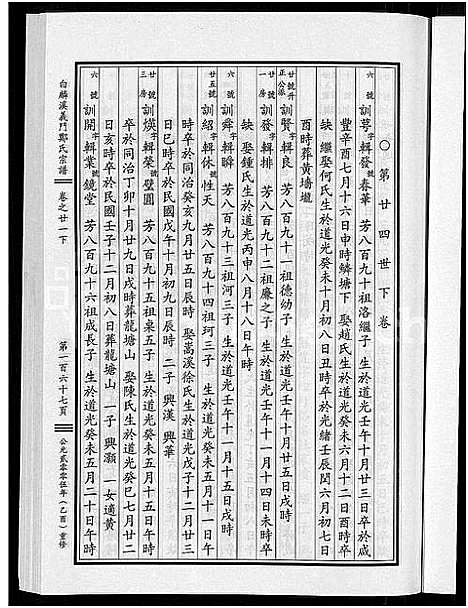 〇第廿四世下卷
六號 訓萼字輯發號春華 芳八百九十祖洛繼子 生於道光壬午十月廿三日卒於咸
豐辛酉七月十六日申時鱗塘下 娶趙氏生於道光癸未六月十二日酉時卒
缺 繼娶何氏生於道光癸未十月初八日丑時卒於光緒壬辰閏六月初七日
酉時葬黃墻壠
廿號升正公派 訓賢字輯良 芳八百九十一祖德幼子 生於道光壬午十月廿五日戌時
廿號一房 訓發字輯排 芳八百九十二祖廉之子 生於道光壬午十一月十四日未時卒
缺 娶鍾氏生於道光丙申八月十八日午時
六號 訓舜字輯瞬 芳八百九十三祖河三子 生於道光壬午十一月十五日戌時
廿五號 訓紹字輯休號性天 芳八百九十四祖珂三子 生於道光癸未五月十一日午
時卒於同治癸亥九月廿五日辰時 娶嵩溪徐氏生於道光戊子十二月廿三
日巳時卒於民國戊午十月初九日辰時 二子 興漢 興華
廿號三房 訓煐字輯榮號壁圓 芳八百九十五祖臬五子 生於道光癸未五月十五日戌時
卒於同治丁卯十月廿九日戌時葬龍塘山 娶陳氏生於道光癸巳七月廿二
日亥時卒於民國壬子十二月初八日葬龍塘山 一子 興灝 一女適黃
六號 訓開字輯業號鏡堂 芳八百九十六祖成長子 生於道光癸未五月二十日午時
白麟溪義門鄭氏宗譜
卷之廿一下
第一百六十七頁
公元貳零零伍年(乙酉)重修